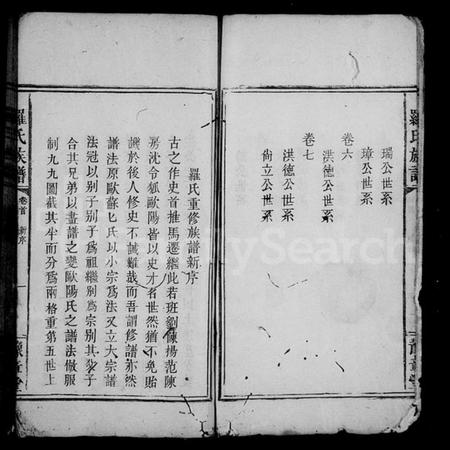 羅氏族譜
瑞公世系
璋公世系
卷六
洪德公世系
卷七
洪德公世系
尚立公世系
羅氏重修族譜新序
古之作史首推馬遷繼此若班劉陳揚范陳
房沈令狐歐陽皆以史才名世然猶不免貽
譏於後人修史不誠難哉而吾謂修譜亦然
譜法原歐蘇七氏以小宗為法又立大宗譜
法冠以别子别子為祖繼别為宗别其衆子
合其兄弟以盡譜之變歐陽氏之譜法倣服
制九九圖截其半而分為兩格重第五世上
羅氏族譜
卷首
新序
一